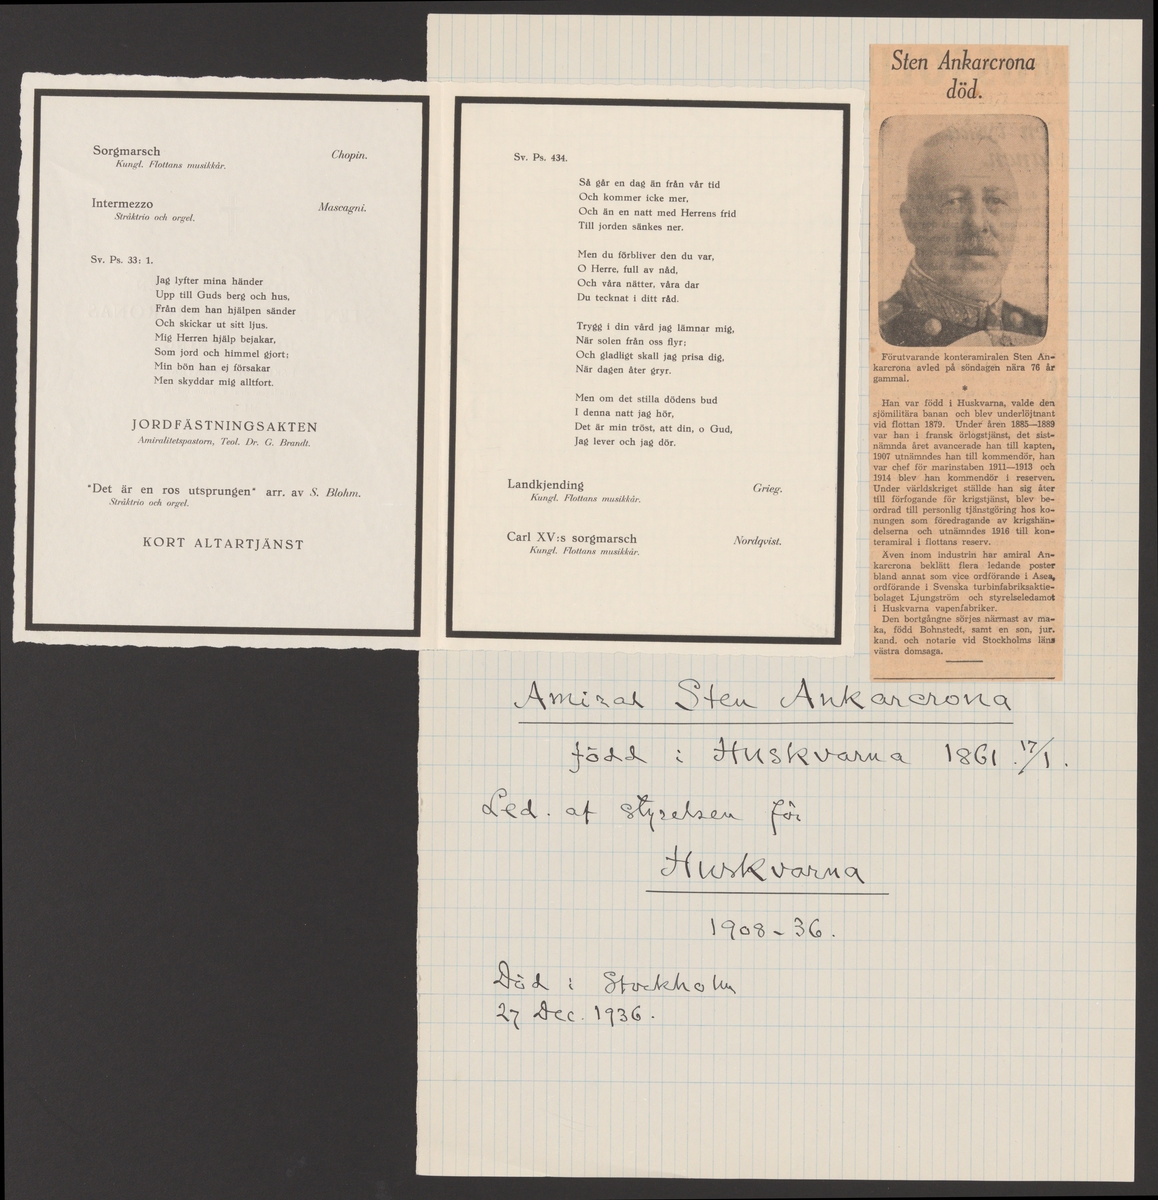 Sorgmarsch Chopin.
Kungl. Flottans musikkår.
Intermezzo Mascagni.
Stråktrio och orgel.
Sv. Ps. 33: 1.
Jag lyfter mina händer
Upp till Guds berg och hus,
Från dem han hjälpen sänder
Och skickar ut sitt ljus.
Mig Herren hjälp bejakar,
Som jord och himmel gjort;
Min bön han ej försakar
Men skyddar mig alltfort.
JORDFÄSTNINGSAKTEN
Amiralitetspastorn, Teol. Dr. G. Brandt.
"Det är en ros utsprungen" arr. av S. Blohm.
Stråktrio och orgel.
KORT ALTARTJÄNST
Sv. Ps. 434.
Så går en dag än från vår tid
Och kommer icke mer,
Och än en natt med Herrens frid
Till jorden sänkes ner.
Men du förbliver den du var,
O Herre, full av nåd,
Och våra nätter, våra dar
Du tecknat i ditt råd.
Trygg i din vård jag lämnar mig,
När solen från oss flyr;
Och gladligt skall jag prisa dig,
När dagen åter gryr.
Men om det stilla dödens bud
I denna natt jag hör,
Det är min tröst, att din, o Gud,
Jag lever och jag dör.
Landkjending Grieg.
Kungl. Flottans musikkår.
Carl XV:s sorgmarsch Nordqvist.
Kungl. Flottans musikkår.
Sten Ankarcrona
död.
Förutvarande konteramiralen Sten An-
karcrona avled på söndagen nära 76 år
gammal.
*
Han var född i Huskvarna, valde den
sjömilitära banan och blev underlöjtnant
vid flottan 1879. Under åren 1885—1889
var han i fransk örlogstjänst, det sist-
nämnda året avancerade han till kapten,
1907 utnämndes han till kommendör, han
var chef för marinstaben 1911—1913 och
1914 blev han kommendör i reserven.
Under världskriget ställde han sig åter
till förfogande för krigstjänst, blev be-
ordrad till personlig tjänstgöring hos ko-
nungen som föredragande av krigshän-
delserna och utnämndes 1916 till kon-
teramiral i flottans reserv.
Även inom industrin har amiral An-
karcrona beklätt flera ledande poster
bland annat som vice ordförande i Asea,
ordförande i Svenska turbinfabriksaktie-
bolaget Ljungström och styrelseledamot
i Huskvarna vapenfabriker.
Den bortgångne sörjes närmast av ma-
ka, född Bohnstedt, samt en son, jur.
kand. och notarie vid Stockholms läns
västra domsaga.
Amiral Sten Ankarcrona
född i Huskvarna 1861 17/1.
Led. af styrelsen för
Huskvarna
1908-36.
Död i Stockholm
27 Dec. 1936.